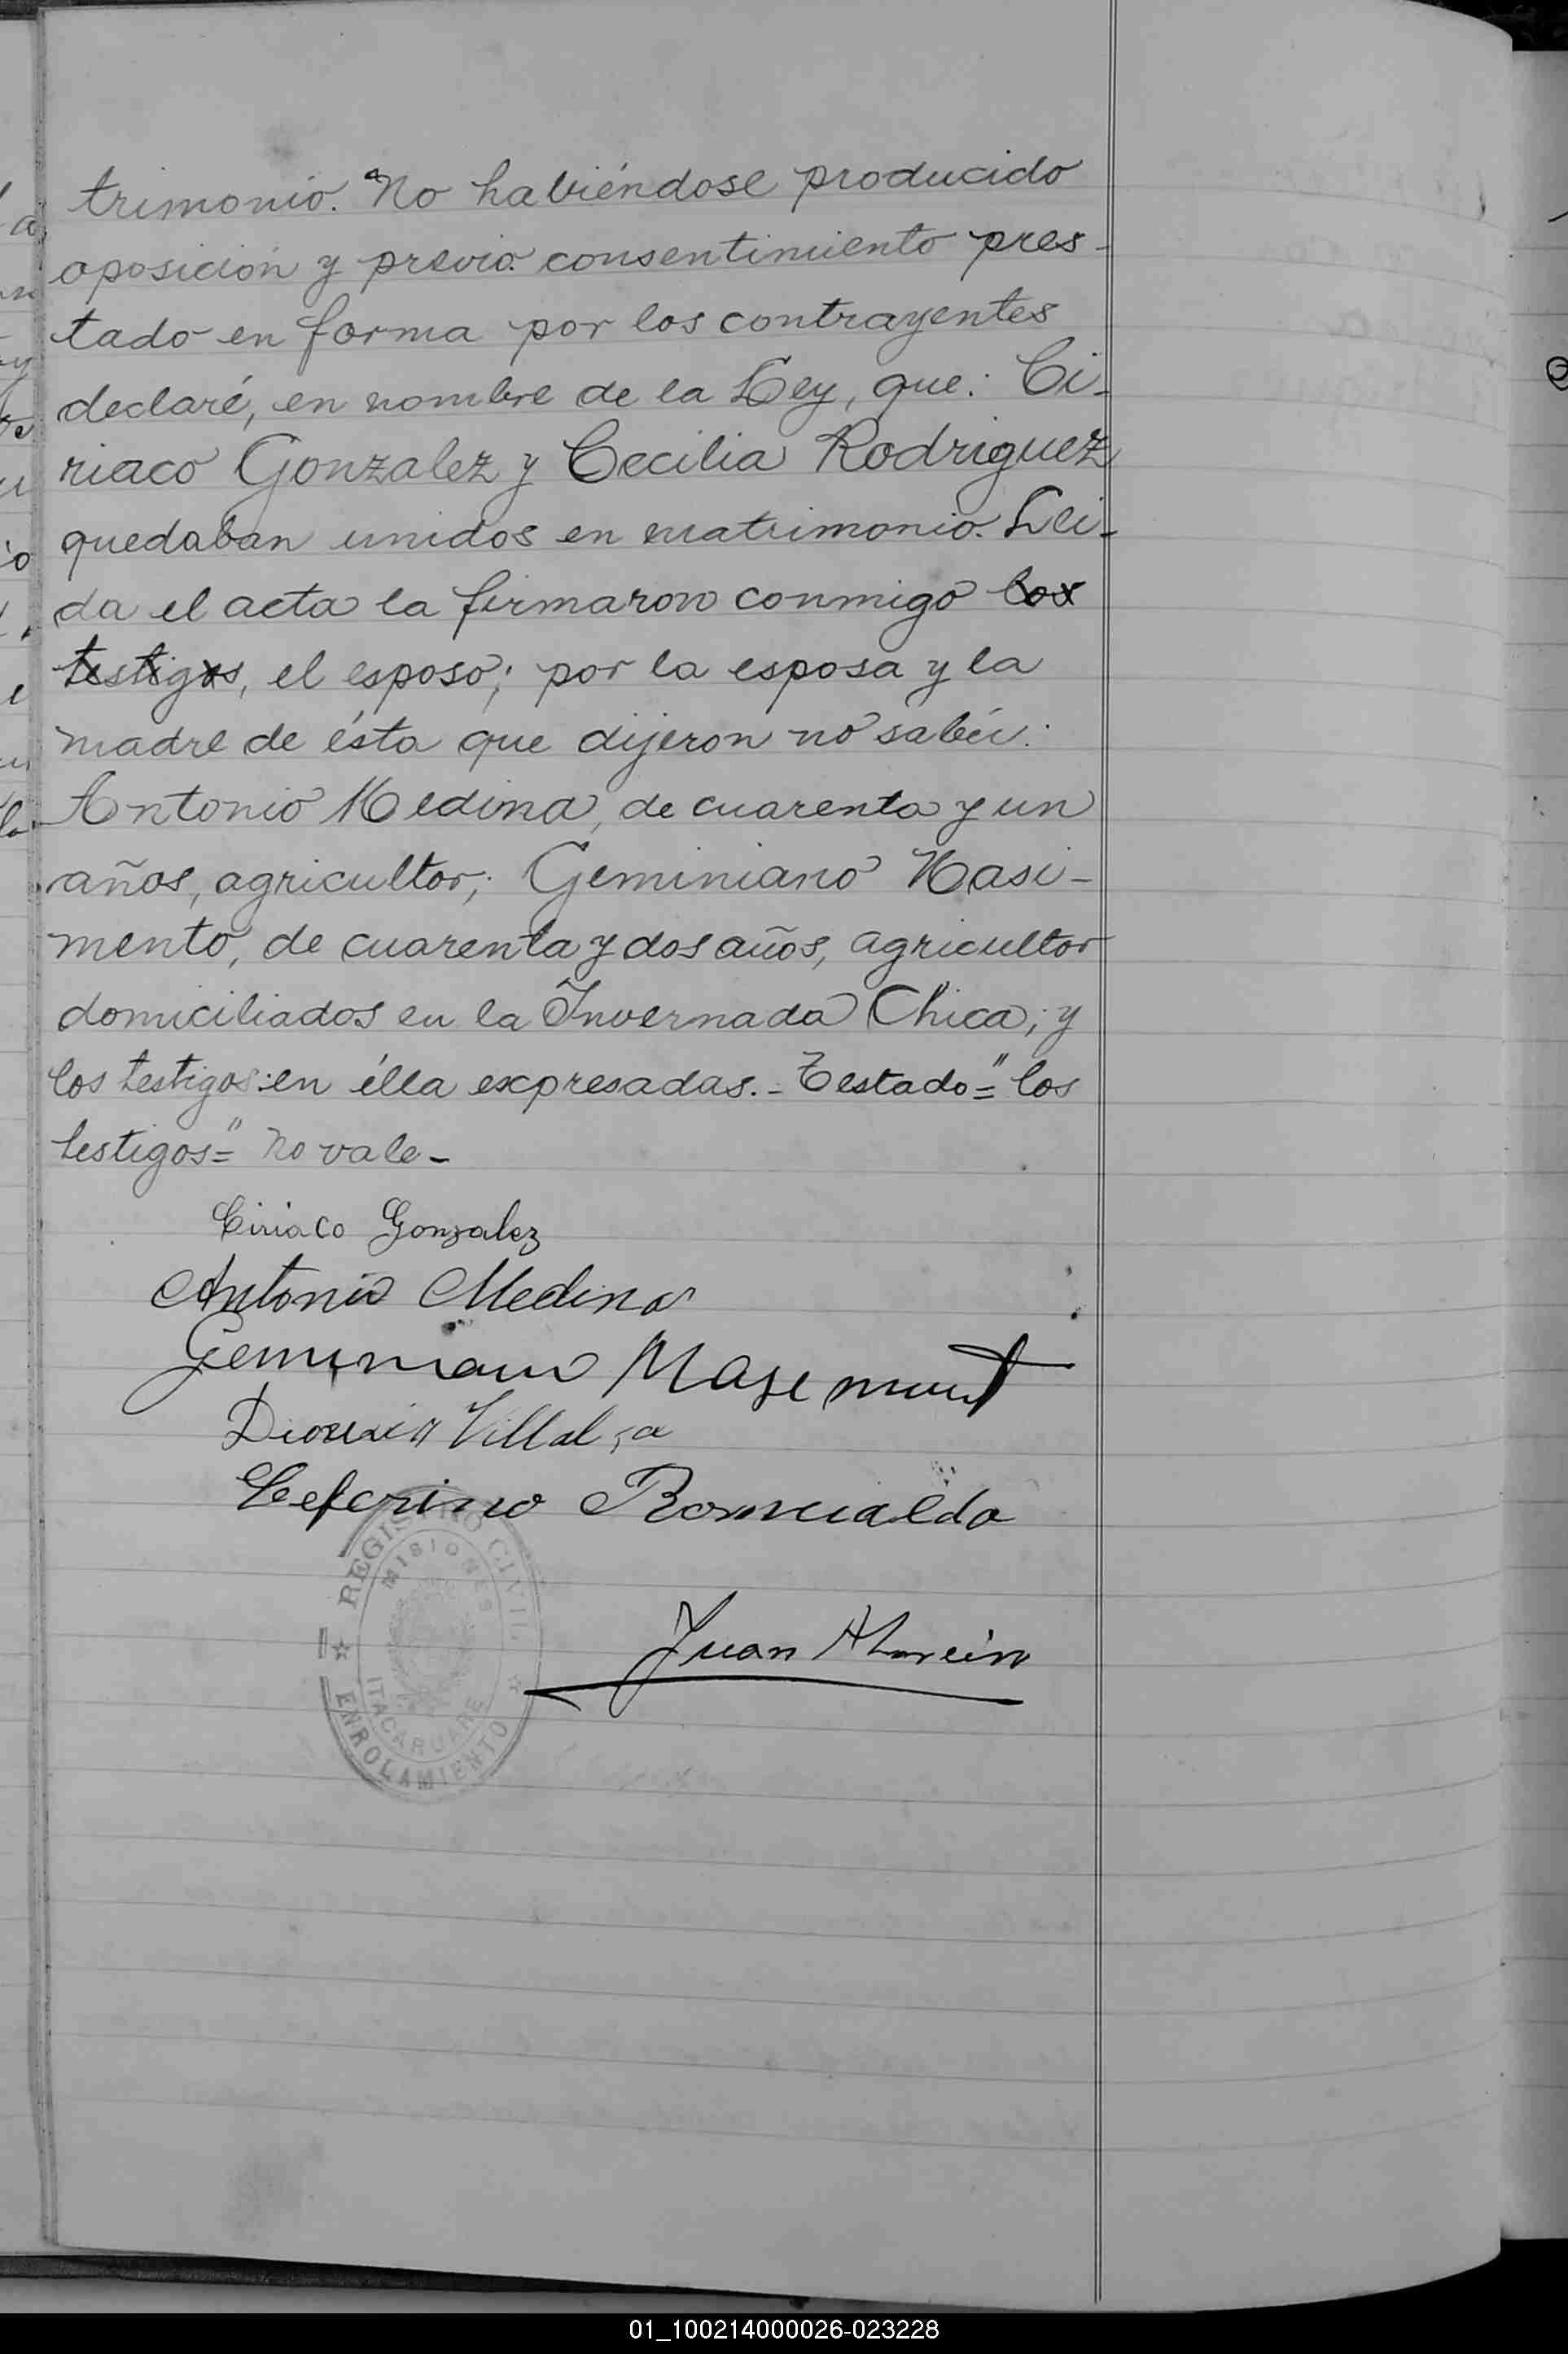 trimonio. No habiéndose producido
oposición y previo consentimiento pres-
tado en forma por los contrayentes
declaré, en nombre de la Ley, que: Ci-
riaco Gonzalez y Cecilia Rodriguez
quedaban unidos en matrimonio. Lei-
da el acta la firmaron conmigo los
testigos, el esposo; por la esposa y la
madre de ésta que dijeron no sabér:
Antonio Medina, de cuarenta y un
años, agricultor; Geminiano Masi-
mento, de cuarenta y dos años, agricultor
domiciliados en la Invernada Chica; y
los testigos en élla expresadas.- Testado="los
testigos=" no vale-
Ciriaco Gonzalez
Antonio Medina
Geminiano
Villalba
Ceferino Romualdo
REGISTRO CIVIL
MISIONES
ITACARUARE
ENROLAMIENTO
Juan
01_100214000026-023228